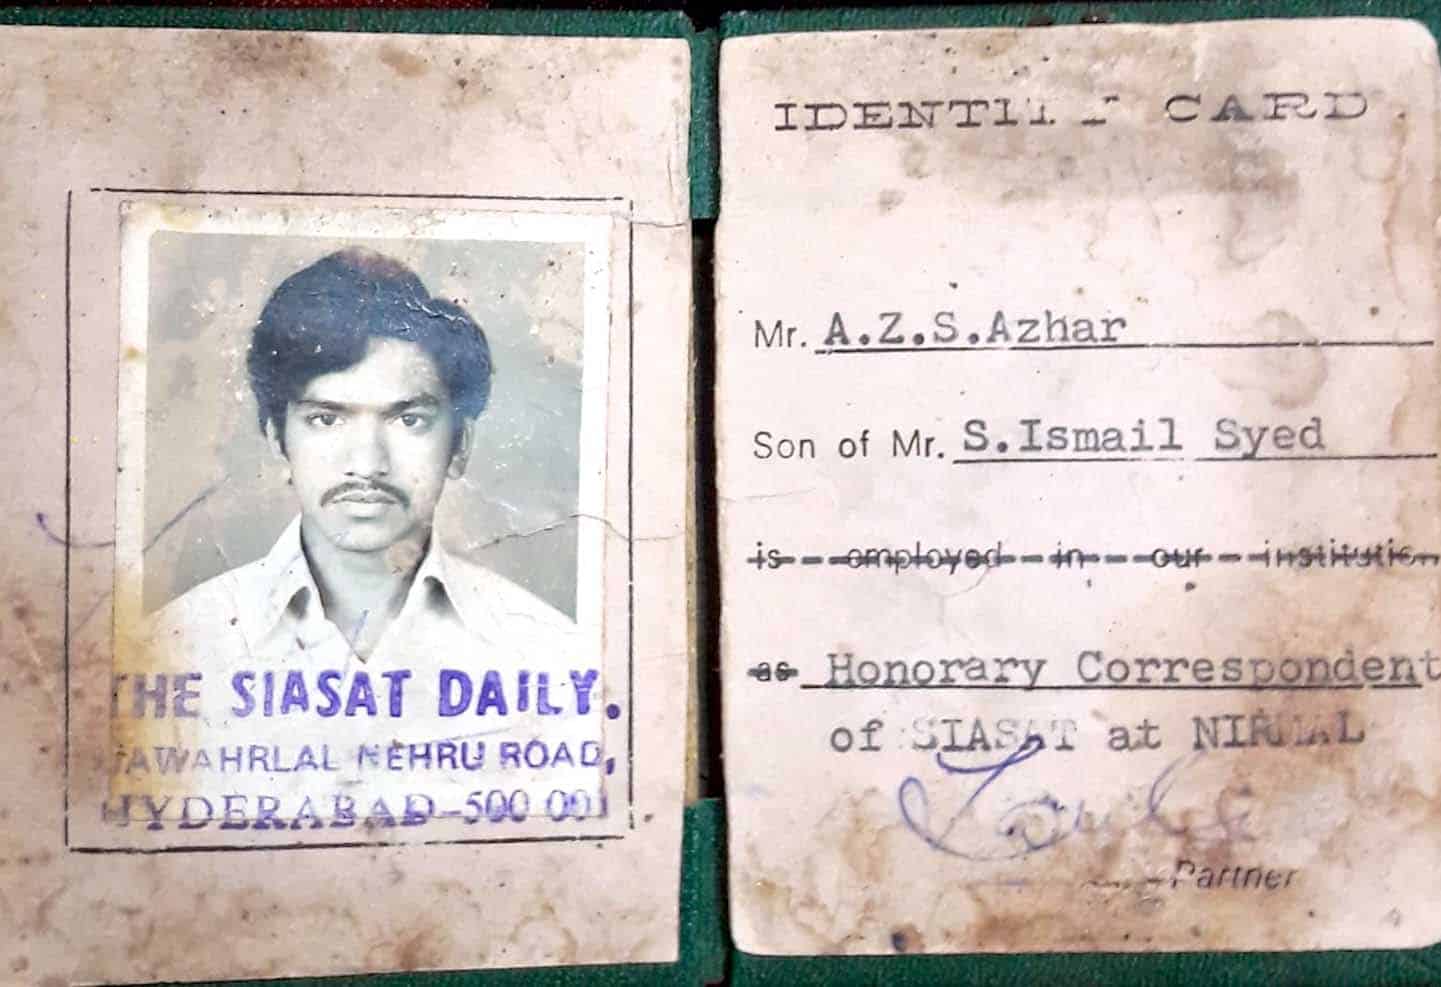 THE SIASAT DAILY.
JAWAHRLAL NEHRU ROAD,
HYDERABAD-500 001
IDENTITY CARD
Mr. A.Z.S.Azhar
Son of Mr. S.Ismail Syed
is employed in our institution
as Honorary Correspondent
of SIASAT at NIRMAL
Partner